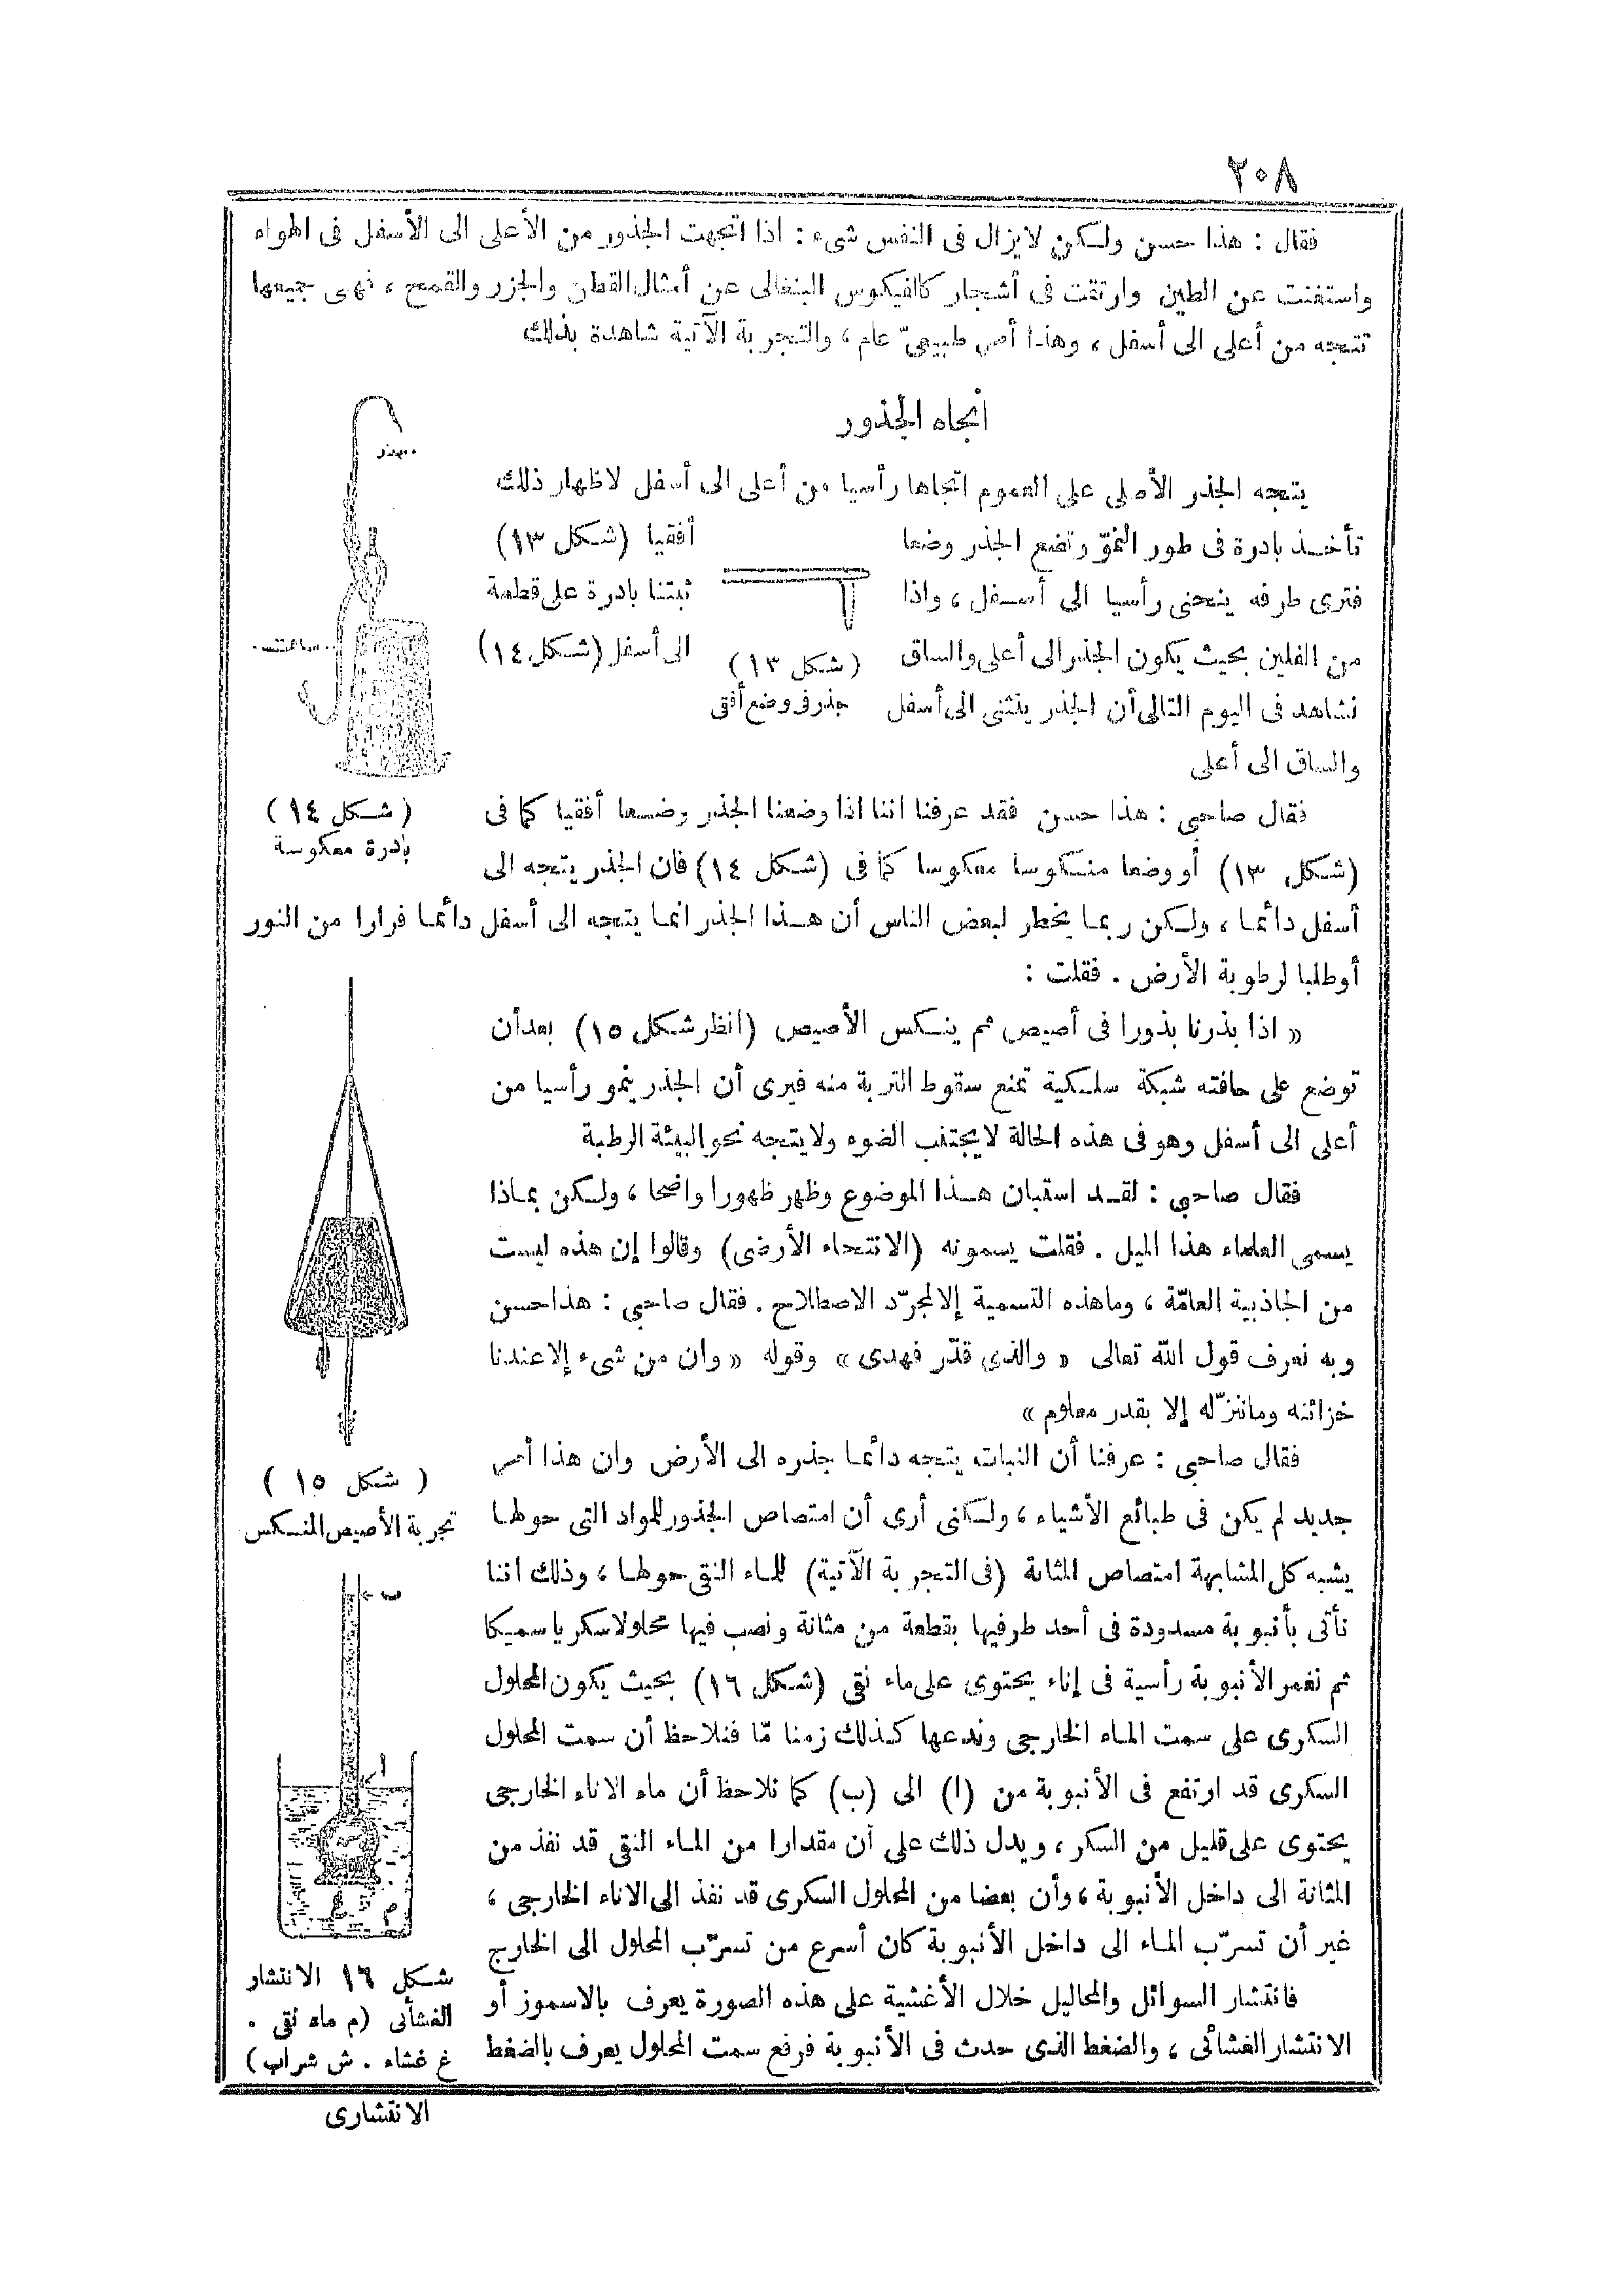 ٢٠٨
فقال : هذا حسن ولكن لا يزال فى النفس شىء : اذا اتجهت الجذور من الأعلى الى الأسفل فى الهواء
واستغنت عن الطين وارتقت فى أشجار كالفيكوس البنغالى عن أمثال القطن والجزر والقمح ، فهى جميعها
تتجه من أعلى الى أسفل ، وهذا أمر طبيعىّ عام ، والتجربة الآتية شاهدة بذلك
اتجاه الجذور
يتجه الجذر الأصلى على العموم اتجاها رأسيا من أعلى الى أسفل لاظهار ذلك
تأخذ بادرة فى طور النموّ وتضع الجذر وضعا أفقيا (شكل ١٣)
فترى طرفه ينحنى رأسيا الى أسفل ، واذا ثبتنا بادرة على قطعة
من الفلين بحيث يكون الجذر الى أعلى والساق الى أسفل (شكل ١٤)
نشاهد فى اليوم التالى أن الجذر ينثنى الى أسفل
والساق الى أعلى
(شكل ١٣)
جذر فى وضع أفقى
جذر
ساق
(شكل ١٤)
بادرة معكوسة
فقال صاحبى : هذا حسن فقد عرفنا اننا اذا وضعنا الجذر وضعا أفقيا كما فى
(شكل ١٣) أو وضعا منكوسا معكوسا كما فى (شكل ١٤) فان الجذر يتجه الى
أسفل دائما ، ولكن ربما يخطر لبعض الناس أن هذا الجذر انما يتجه الى أسفل دائما فرارا من النور
أو طلبا لرطوبة الأرض . فقلت :
« اذا بذرنا بذورا فى أصيص ثم ينكس الأصيص (انظر شكل ١٥) بعد أن
توضع على حافته شبكة سلكية تمنع سقوط التربة منه فيرى أن الجذر ينمو رأسيا من
أعلى الى أسفل وهو فى هذه الحالة لا يجتنب الضوء ولا يتجه نحو البيئة الرطبة
فقال صاحبى : لقد استبان هذا الموضوع وظهر ظهورا واضحا ، ولكن بماذا
يسمى العلماء هذا الميل . فقلت يسمونه (الانتحاء الأرضى) وقالوا إن هذه ليست
من الجاذبية العامّة ، وما هذه التسمية إلا لمجرّد الاصطلاح . فقال صاحبى : هذا حسن
وبه نعرف قول الله تعالى « والذى قدّر فهدى » وقوله « وان من شىء إلا عندنا
خزائنه وما ننزّله إلا بقدر معلوم »
فقال صاحبى : عرفنا أن النبات يتجه دائما جذره الى الأرض وان هذا أمر
جديد لم يكن فى طبائع الأشياء ، ولكنى أرى أن امتصاص الجذور للمواد التى حولها
يشبه كل المشابهة امتصاص المثانة (فى التجربة الآتية) للماء النقى حولها ، وذلك اننا
نأتى بأنبوبة مسدودة فى أحد طرفيها بقطعة من مثانة ونصب فيها محلولا سكريا سميكا
ثم نغمر الأنبوبة رأسية فى إناء يحتوى على ماء نقى (شكل ١٦) بحيث يكون المحلول
السكرى على سمت الماء الخارجى وندعها كذلك زمنا مّا فنلاحظ أن سمت المحلول
السكرى قد ارتفع فى الأنبوبة من (ا) الى (ب) كما نلاحظ أن ماء الاناء الخارجى
يحتوى على قليل من السكر ، ويدل ذلك على أن مقدارا من الماء النقى قد نفذ من
المثانة الى داخل الأنبوبة ، وأن بعضا من المحلول السكرى قد نفذ الى الاناء الخارجى ،
غير أن تسرّب الماء الى داخل الأنبوبة كان أسرع من تسرّب المحلول الى الخارج
فانتشار السوائل والمحاليل خلال الأغشية على هذه الصورة يعرف بالاسموز أو
الانتشار الغشائى ، والضغط الذى حدث فى الأنبوبة فرفع سمت المحلول يعرف بالضغط
(شكل ١٥)
تجربة الأصيص المنكس
ب
ا
غ
م
شكل ١٦ الانتشار
الغشائى (م ماء نقى .
غ غشاء . ش شراب)
الانتشارى